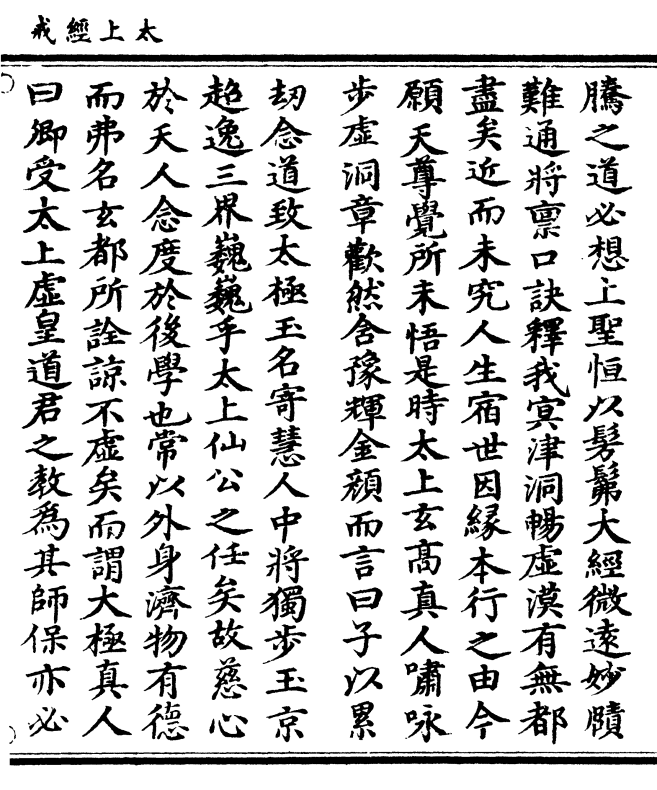 太上經戒
騰之道必想上聖恒以髣髴大經微遠妙賾
難通將禀口訣釋我冥津洞暢虛漠有無都
盡矣近而未究人生宿世因緣本行之由今
願天尊覺所未悟是時太上玄高真人嘯咏
步虛洞章歡然含豫輝金顔而言曰子以累
劫念道致太極玉名寄慧人中將獨步玉京
超逸三界巍巍乎太上仙公之任矣故慈心
於天人念度於後學也常以外身濟物有德
而弗名玄都所詮諒不虛矣而謂大極真人
曰卿受太上虛皇道君之教為其師保亦必